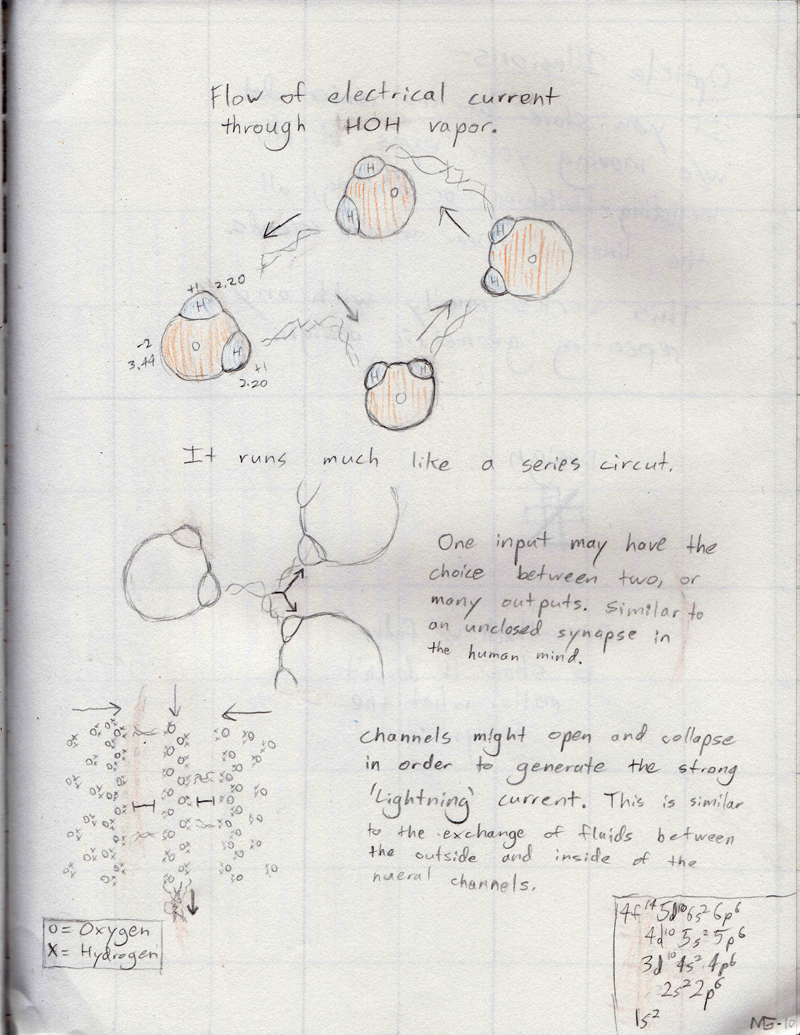 Flow of electrical current
through HOH vapor.
H
O
H
H
O
H
+1 2.20
H
-2
3.44
O
H
+1
2.20
H
H
O
It runs much like a series circut.
One input may have the
choice between two, or
many outputs. Similar to
an unclosed synapse in
the human mind.
channels might open and collapse
in order to generate the strong
'Lightning' current. This is similar
to the exchange of fluids between
the outside and inside of the
nueral channels.
O = Oxygen
X = Hydrogen
4f¹⁴5d¹⁰6s²6p⁶
4d¹⁰5s²5p⁶
3d¹⁰4s²4p⁶
2s²2p⁶
1s²